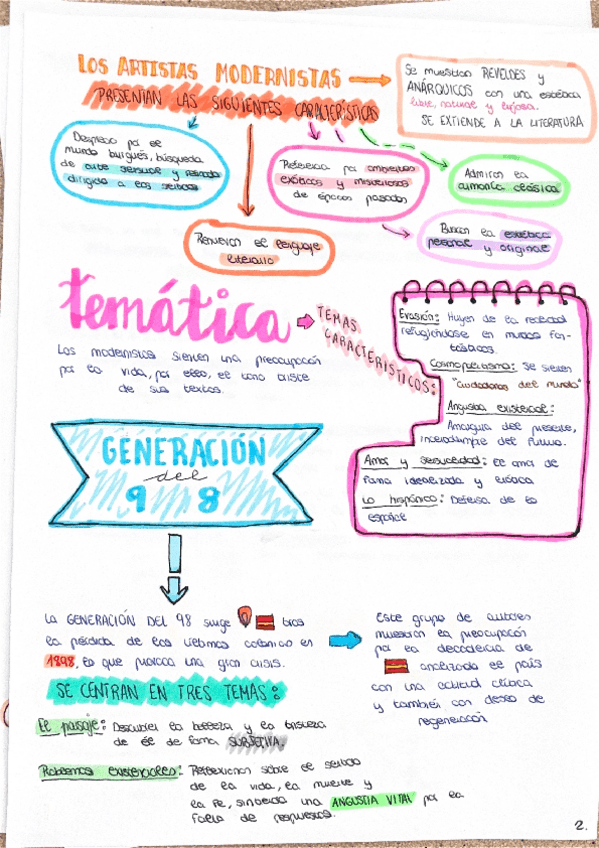 LOS ARTISTAS MODERNISTAS
PRESENTAN LAS SIGUIENTES CARACTERÍSTICAS
Se muestran REVELDES y
ANÁRQUICOS con una estética
libre, natural y lujosa.
SE EXTIENDE A LA LITERATURA
Desprecio por el
mundo burgués, búsqueda
de arte sensual y refinado
dirigido a los sentidos
Preferencia por ambientes
exóticos y misteriosos
de épocas pasadas
Admiran la
armonía clásica
Buscan la estética
personal y original
Renuevan el lenguaje
literario
temática
TEMAS
CARACTERÍSTICOS:
Los modernistas sienten una preocupación
por la vida, por ello, el tono triste
de sus textos.
Evasión: Huyen de la realidad
refugiándose en mundos fan-
tásticos.
Cosmopolitismo: Se sienten
"ciudadanos del mundo"
Angustia existencial:
Amargura del presente,
incertidumbre del futuro.
Amor y sensualidad: El amor de
forma idealizada y erótica
Lo hispánico: Defensa de lo
español
GENERACIÓN
del
98
LA GENERACIÓN DEL 98 surge
tras
la pérdida de las últimas colonias en
1898, lo que marca una gran crisis.
Este grupo de autores
muestran la preocupación
por la decadencia de
analizando el país
con una actitud crítica
y también con deseo de
regeneración
SE CENTRAN EN TRES TEMAS:
El paisaje: Descubren la belleza y la tristeza
de él de forma SUBJETIVA.
Problemas existenciales: Reflexionan sobre el sentido
de la vida, la muerte y
la fe, sintiendo una ANGUSTIA VITAL por la
falta de respuestas.
2.